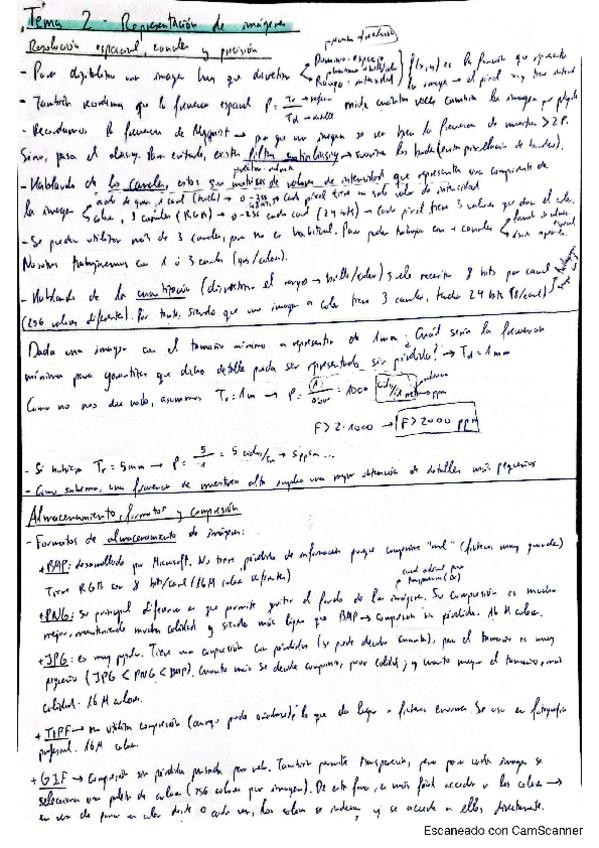 Tema 2 - Representación de imágenes
Resolución espacial, canales y precisión
- Para digitalizar una imagen hay que discretizar
Dominio: espacio
Rango: intensidad
f(x,y) es la función que representa
la imagen → el pixel
- También recordemos que la frecuencia espacial P = Tr / Td mide cuántas veces cambia la imagen por
- Recordemos la frecuencia de Nyquist → para que una imagen se vea bien la frecuencia de muestreo > 2P.
Sino, pasa el aliasing. Para evitarlo, existen filtros antialiasing → suaviza los bordes
- Hablando de los canales, estos son matrices de valores de intensidad que representa una componente de
la imagen
1 canal → 0-255 → cada pixel tiene un solo valor de intensidad
color, 3 canales (RGB) → 0-256 cada canal (24 bits) → cada pixel tiene 3 valores que dan el color.
- Se pueden utilizar más de 3 canales, pero no es habitual. Para poder trabajar con + canales
Nosotros trabajaremos con 1 ó 3 canales (gris/color).
- Hablando de la cuantización (discretizar el rango → brillo/color) suele necesitar 8 bits por canal
(256 valores diferentes). Por tanto, siendo que una imagen a color tiene 3 canales, tendrá 24 bits (8/canal)
Dada una imagen con el tamaño mínimo a representar de 1mm ¿Cuál sería la frecuencia
mínima para garantizar que dicho detalle pueda ser representado sin pérdida? → Td = 1mm
Como no nos dan nada, asumimos Tr = 1m → P = 1 / 0'001 = 1000 ciclos/m
F > 2·1000 → F > 2000 ppm
- Si tuviera Tr = 5mm → P = 5/1 = 5 ciclos → 5ppm...
- Como sabemos, una frecuencia de muestreo alta implica una mayor obtención de detalles más pequeños
Almacenamiento, formatos y compresión
- Formatos de almacenamiento de imágenes:
+ BMP: desarrollado por Microsoft. No tiene pérdida de información porque comprime "mal" (ficheros muy grandes)
Tiene RGB con 8 bits/canal (16M colores diferentes)
canal adicional para
transparencia
+ PNG: Su principal diferencia es que permite quitar el fondo de las imágenes. Su compresión es mucho
mejor, manteniendo mucha calidad y siendo más ligero que BMP → Compresión sin pérdida. 16 M colores.
+ JPG: es muy popular. Tiene una compresión con pérdidas (se puede decidir cuanta), pero el tamaño es muy
pequeño (JPG < PNG < BMP). Cuanto más se decide comprimir, peor calidad; y cuanto mayor el tamaño, más
calidad. 16 M colores.
+ TIFF → no utiliza compresión (aunque puede), lo que da lugar a ficheros enormes. Se usa en fotografía
profesional. 16M colores.
+ GIF → Compresión sin pérdida. También permite transparencia, pero para cada imagen se
selecciona una paleta de colores (256 colores por imagen). De esta forma, es más fácil acceder a los colores →
en vez de poner un color desde 0 cada vez, los colores se indexan y se accede a ellos directamente.
Escaneado con CamScanner